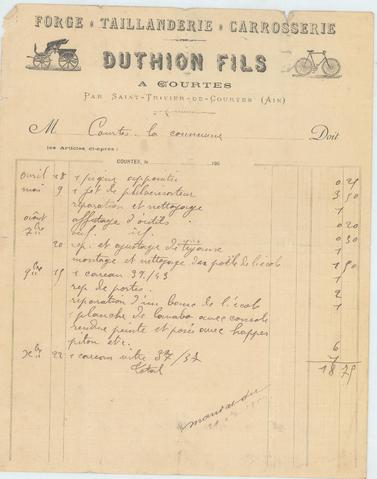 FORGE * TAILLANDERIE * CARROSSERIE
DUTHION FILS
A COURTES
PAR SAINT-TRIVIER-DE-COURTES (AIN)
M Courtes la commune Doit
les Articles ci-après:
COURTES, le 190
avril 28 1 0 25
mai 9 1 3 50
réparation et nettoyage 1
août affutage d'outils 0 20
7bre id. id. 0 30
20 rep. et ajustage de
montage et nettoyage des poêle de l'école 1 50
9bre 15 1 carreau 39/43 1
rep. de portes. 2
réparation d'un banc de l'école 1
1 planche de avec console
rendue peinte et posée avec happes
piton etc. 6
Xbre 22 1 carreau vitre 37/37 1
Total 18 75